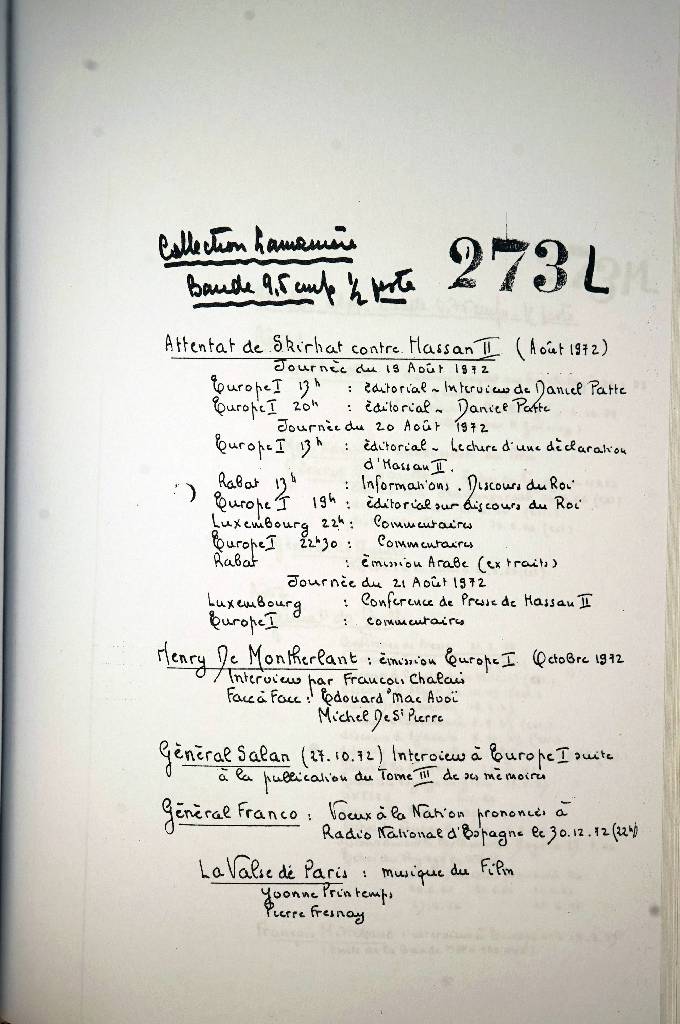 Collection Lamemière
Bande 9,5 cmp ½ piste
273L
Attentat de Skirhat contre Hassan II (Août 1972)
Journée du 19 Août 1972
Europe I 13h : éditorial ~ Interview de Daniel Patte
Europe I 20h : éditorial ~ Daniel Patte
Journée du 20 Août 1972
Europe I 13h : éditorial ~ Lecture d'une déclaration
d'Hassan II.
Rabat 13h : Informations . Discours du Roi
Europe I 19h : éditorial sur discours du Roi
Luxembourg 22h : Commentaires
Europe I 22h30 : Commentaires
Rabat : émission Arabe (extraits)
Journée du 21 Août 1972
Luxembourg : Conference de Presse de Hassan II
Europe I : commentaires
Henry De Montherlant : émission Europe I Octobre 1972
Interview par Francois Chalais
Face à Face : Edouard Mac Avoï
Michel De St Pierre
Général Salan (27.10.72) Interview à Europe I suite
à la publication du Tome III de ses mémoires
Général Franco : Voeux à la Nation prononcés à
Radio National d'Espagne le 30.12.72 (22h)
La Valse dé Paris : musique du Film
Yvonne Printemps
Pierre Fresnay